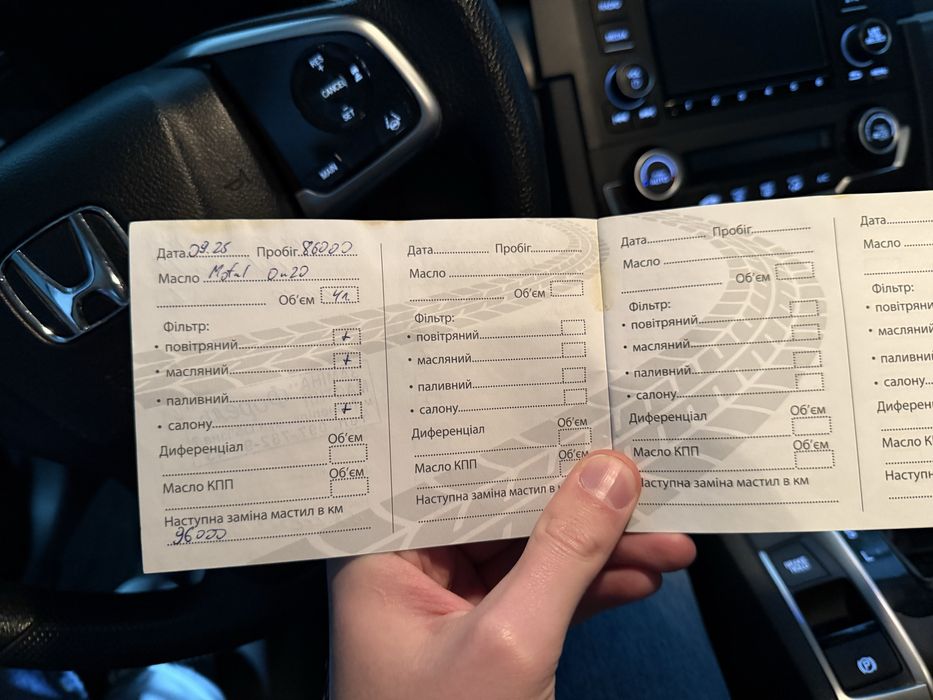 RES
CANCEL
SET
MAIN
Дата 09.25 Пробіг 86000
Масло Motul 0w20
Об'єм 4л.
Фільтр:
• повітряний +
• масляний +
• паливний
• салону +
Диференціал Об'єм
Масло КПП Об'єм
Наступна заміна мастил в км
96000
Дата Пробіг
Масло
Об'єм
Фільтр:
• повітряний
• масляний
• паливний
• салону
Диференціал Об'єм
Масло КПП Об'єм
Наступна заміна мастил в к
Дата Пробіг
Масло
Об'єм
Фільтр:
• повітряний
• масляний
• паливний
• салону
Диференціал Об'єм
Масло КПП Об'єм
Наступна заміна мастил в км
Дата
Масло
Фільтр:
• повітряни
• масляний
• паливни
• салону
Диферен
Масло К
Наступн